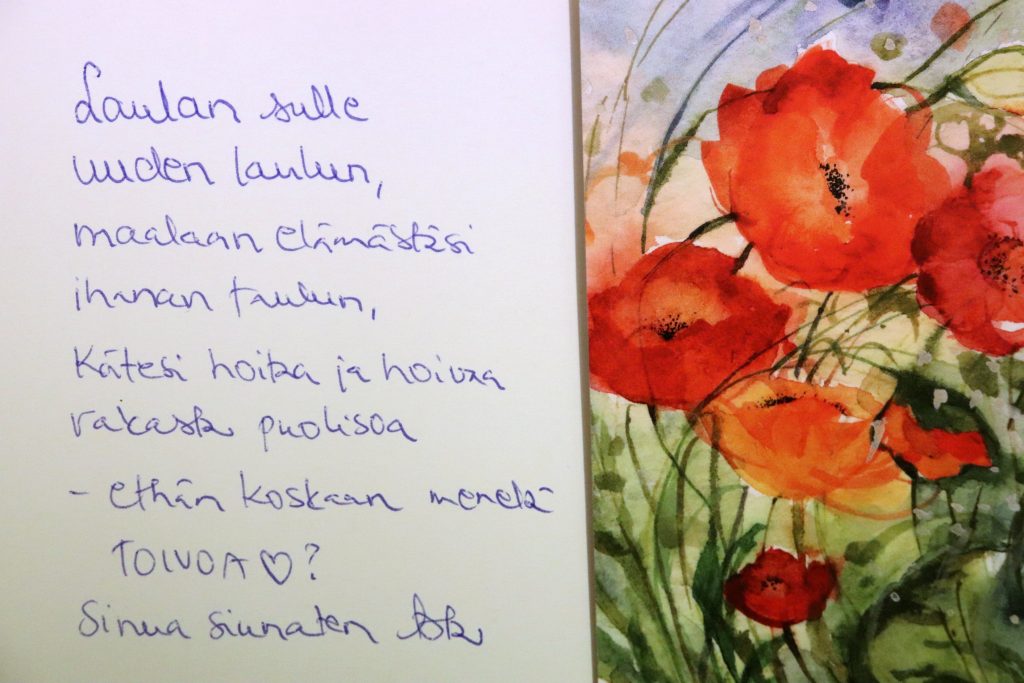 Laulan sulle
uuden laulun,
maalaan elämästäsi
ihanan taulun,
Kätesi hoitaa ja hoivaa
rakasta puolisoa
- ethän koskaan menetä
TOIVOA♡?
Sinua siunaten